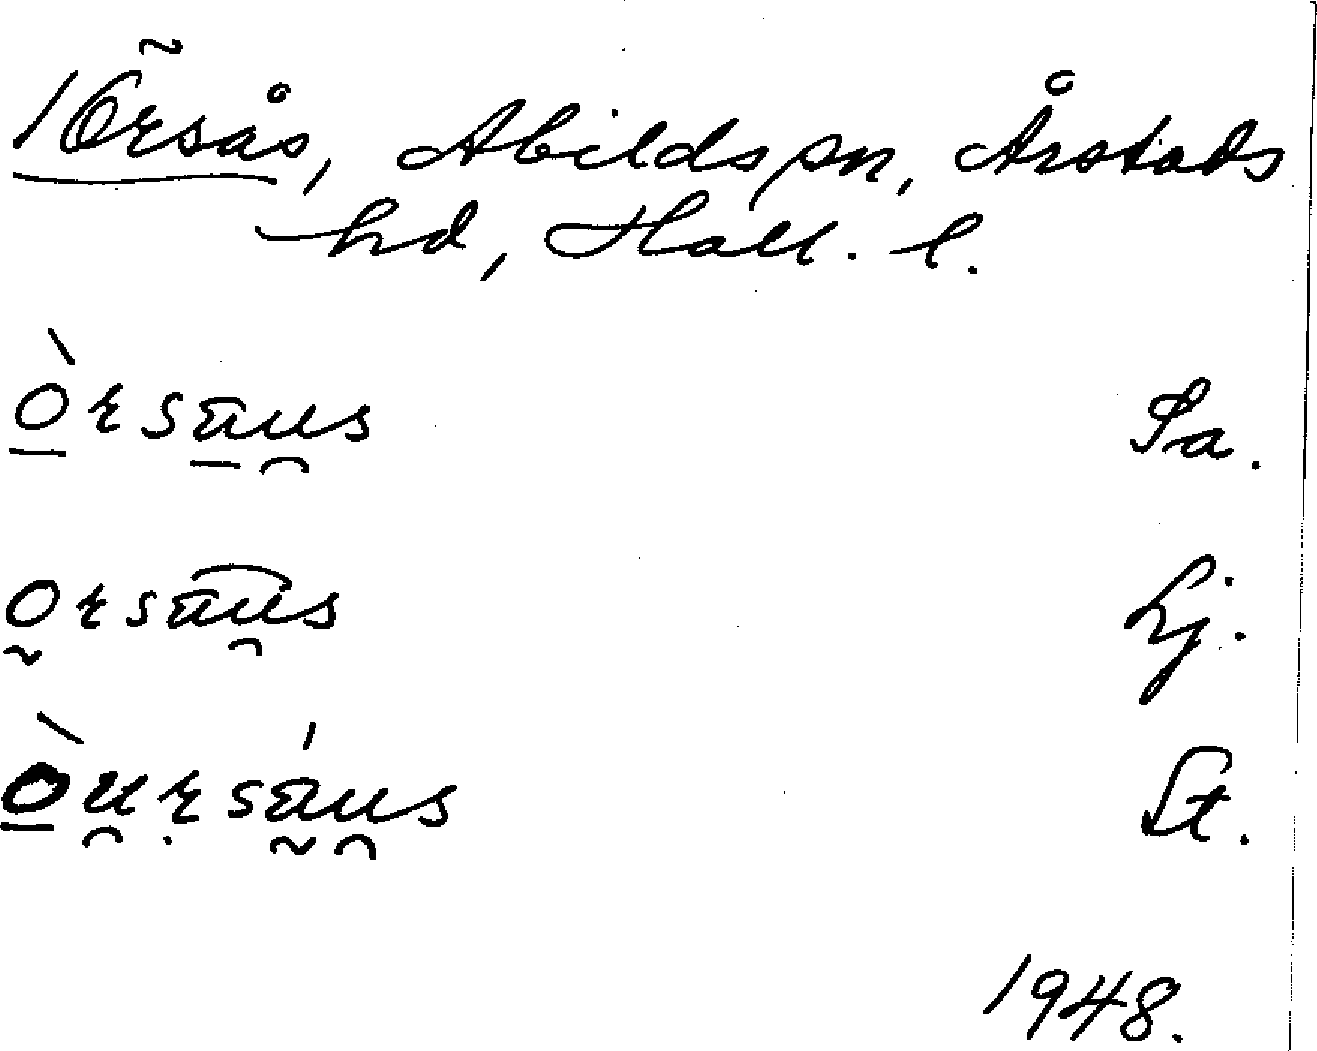 Örsås, Abilds sn, Årstads
hd, Hall. l.
òrsaus Sa.
orsaus Lj.
òursáus St.
1948.